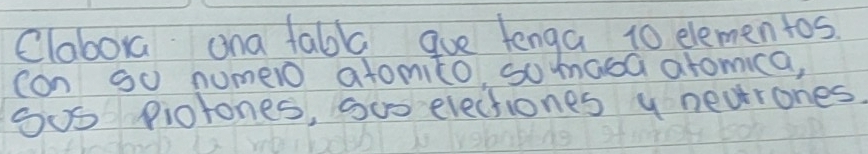 Elabora una tabla que tenga 10 elementos.
con su numero atomico, su masa atomica,
sus protones, sus electrones y neutrones.